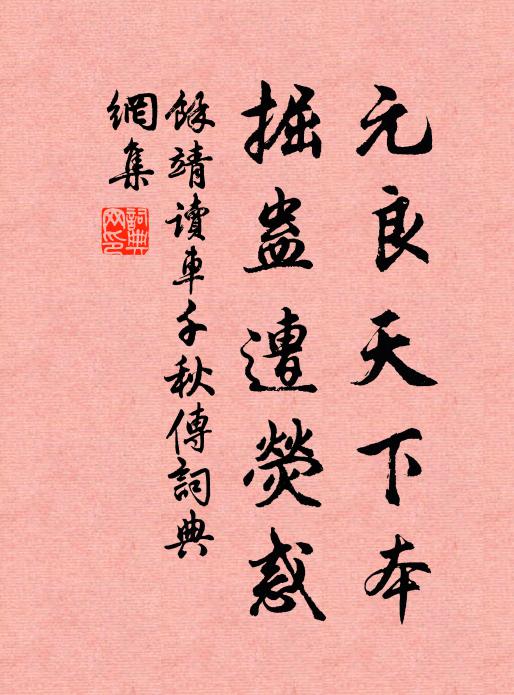 元良天下本
掘蠱遭熒惑
餘靖讀車千秋傳詞典
網集
詞典網印